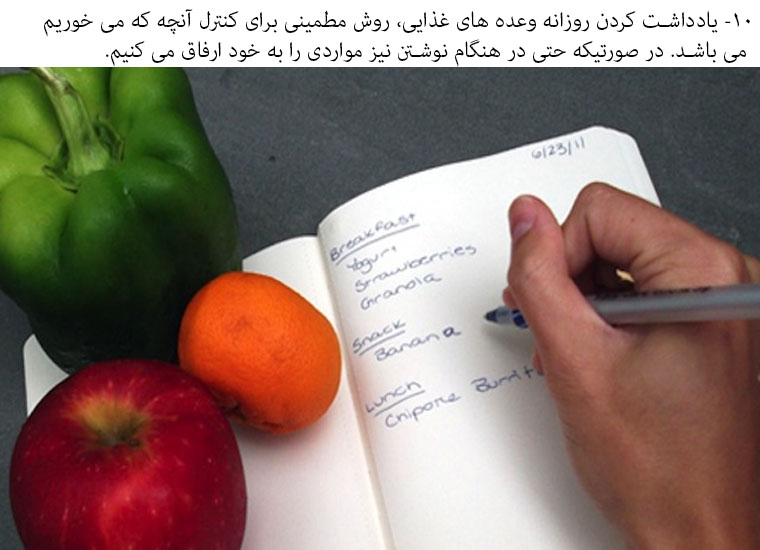 ۱۰- یادداشت کردن روزانه وعده های غذایی، روش مطمینی برای کنترل آنچه که می خوریم
می باشد. در صورتیکه حتی در هنگام نوشتن نیز مواردی را به خود ارفاق می کنیم.
6/23/11
Breakfast
Yogurt
Strawberries
Granola
Snack
Banana
Lunch
Chipotle